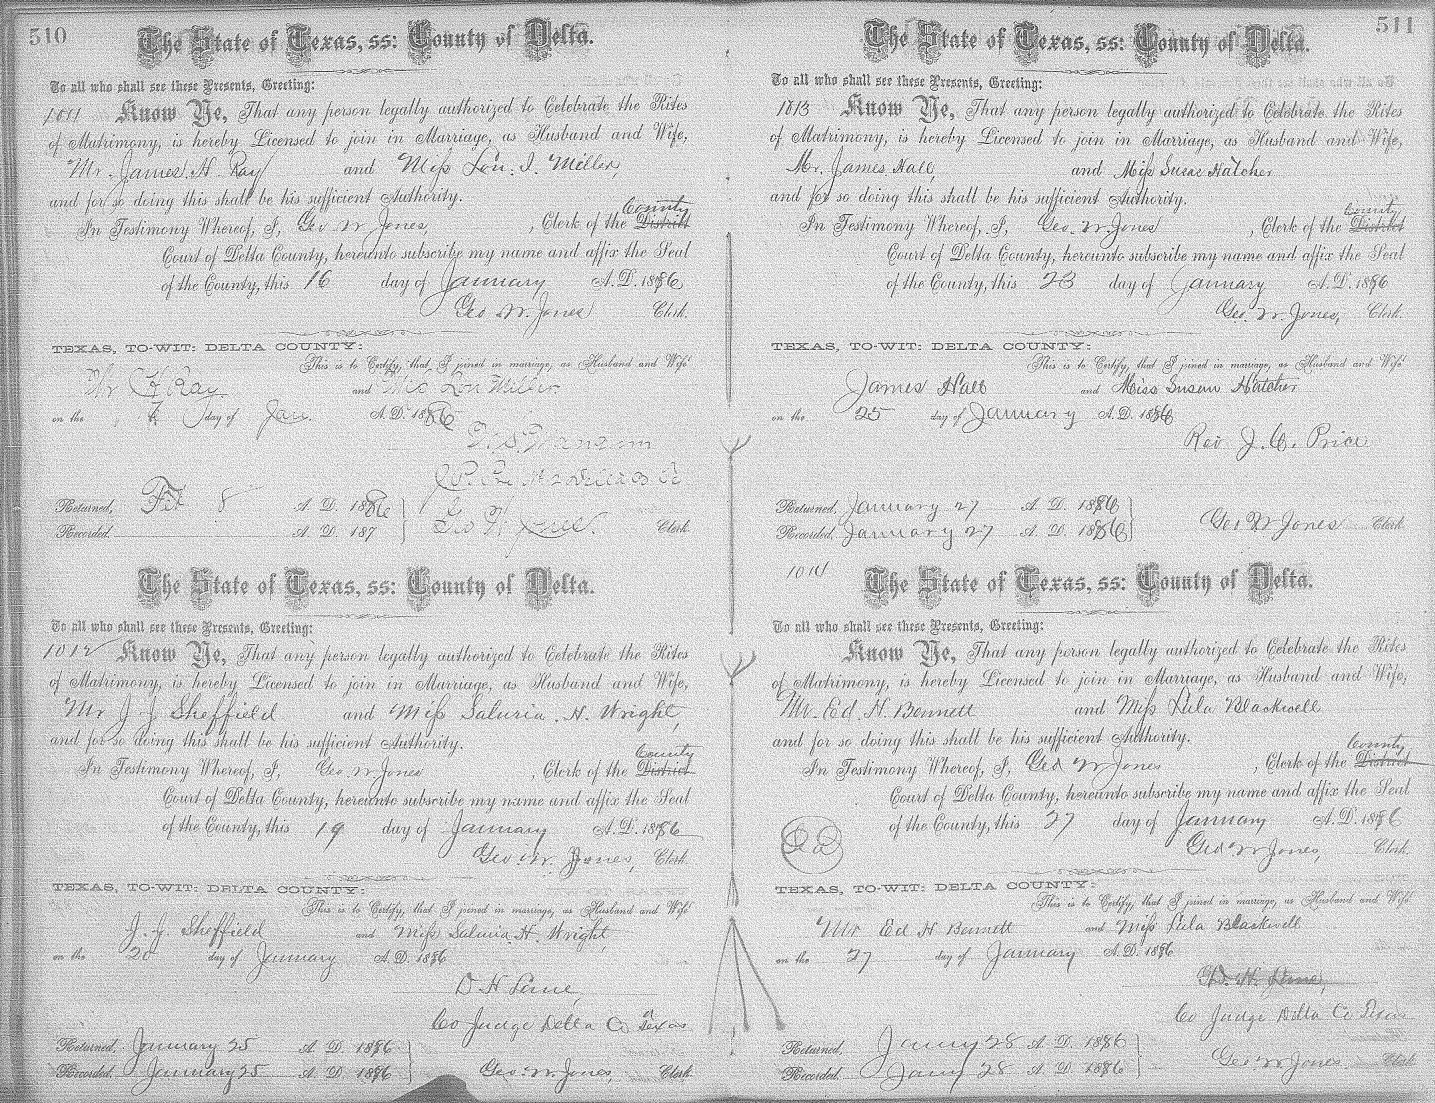 510
The State of Texas, ss: County of Delta.
To all who shall see these Presents, Greeting:
1011 Know Ye, That any person legally authorized to Celebrate the Rites
of Matrimony, is hereby Licensed to join in Marriage, as Husband and Wife,
Mr. James H. Ray and Miss Lou. I. Miller,
and for so doing this shall be his sufficient Authority.
County
In Testimony Whereof, I, Geo W Jones, , Clerk of the District
Court of Delta County, hereunto subscribe my name and affix the Seal
of the County, this 16 day of January A. D. 1886
Geo W. Jones Clerk.
TEXAS, TO-WIT: DELTA COUNTY:
This is to Certify, that I joined in marriage, as Husband and Wife
Mr Ray and Mis Lou Miller
on the day of Jan. A. D. 1886
Returned, Feb 8 A. D. 1886
Recorded. A. D. 187
Geo W Jones Clerk
The State of Texas, ss: County of Delta.
To all who shall see these Presents, Greeting:
1012 Know Ye, That any person legally authorized to Celebrate the Rites
of Matrimony, is hereby Licensed to join in Marriage, as Husband and Wife,
Mr J J Sheffield and Miss Saluria. H. Wright,
and for so doing this shall be his sufficient Authority.
County
In Testimony Whereof, I, Geo. W Jones , Clerk of the District
Court of Delta County, hereunto subscribe my name and affix the Seal
of the County, this 19 day of January A. D. 1886
Geo W. Jones, Clerk.
TEXAS, TO-WIT: DELTA COUNTY:
This is to Certify, that I joined in marriage, as Husband and Wife
J. J. Sheffield and Miss Saluria. H. Wright,
on the 20 day of January A. D. 1886
D H Lane,
Co Judge Delta Co Texas
Returned, January 25 A. D. 1886
Recorded. January 25 A. D. 1886
Geo. W Jones, Clerk
511
The State of Texas, ss: County of Delta.
To all who shall see these Presents, Greeting:
1013 Know Ye, That any person legally authorized to Celebrate the Rites
of Matrimony, is hereby Licensed to join in Marriage, as Husband and Wife,
Mr. James Hall, and Miss Susan Hatcher
and for so doing this shall be his sufficient Authority.
County
In Testimony Whereof, I, Geo. W Jones , Clerk of the District
Court of Delta County, hereunto subscribe my name and affix the Seal
of the County, this 23 day of January A. D. 1886
Geo. W. Jones, Clerk.
TEXAS, TO-WIT: DELTA COUNTY:
This is to Certify, that I joined in marriage, as Husband and Wife
James Hall and Miss Susan Hatcher
on the 25 day of January A. D. 1886
Rev J. C. Price
Returned, January 27 A. D. 1886
Recorded, January 27 A. D. 1886
Geo W Jones Clerk
1014
The State of Texas, ss: County of Delta.
To all who shall see these Presents, Greeting:
Know Ye, That any person legally authorized to Celebrate the Rites
of Matrimony, is hereby Licensed to join in Marriage, as Husband and Wife,
Mr. Ed H. Bennett and Miss Lula Blackwell
and for so doing this shall be his sufficient Authority.
County
In Testimony Whereof, I, Geo W Jones , Clerk of the District
Court of Delta County, hereunto subscribe my name and affix the Seal
of the County, this 27 day of January A. D. 1886
Geo W Jones, Clerk.
TEXAS, TO-WIT: DELTA COUNTY:
This is to Certify, that I joined in marriage, as Husband and Wife
Mr Ed H Bennett and Miss Lula Blackwell
on the 27 day of January A. D. 1886
D. H. Lane,
Co Judge Delta Co Texas
Returned, Jany 28 A. D. 1886
Recorded. Jany 28 A. D. 1886
Geo W Jones Clerk